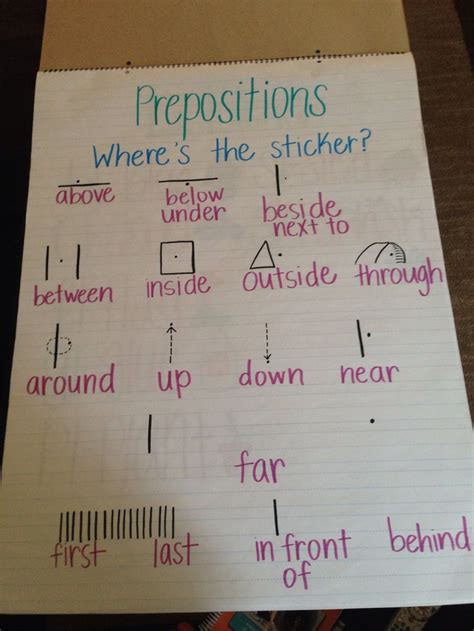 Prepositions
Where's the sticker?
above below under beside next to
between inside outside through
around up down near
far
first last in front of behind